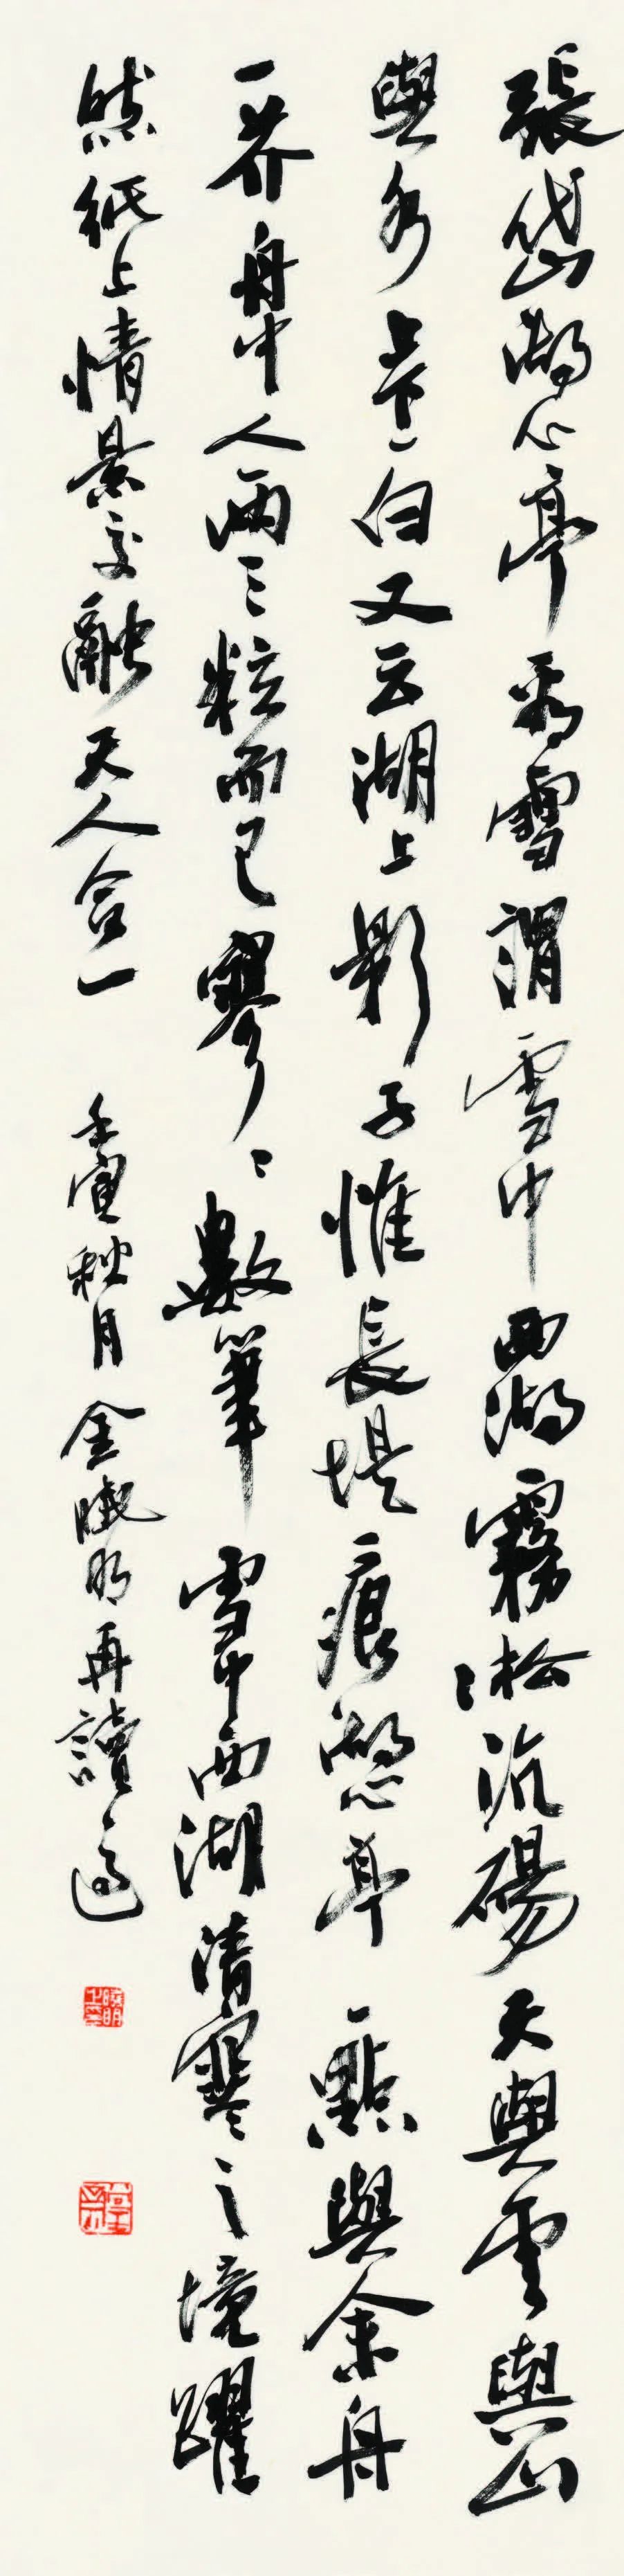 張岱湖心亭看雪謂雪中西湖霧凇沆碭天與雲與山
與水上下一白又云湖上影子惟長堤一痕湖心亭一點與余舟
一芥舟中人兩三粒而已寥〻數筆雪中西湖清寒之境躍
然紙上情景交融天人合一
壬寅秋月金曉明再讀一過
曉明